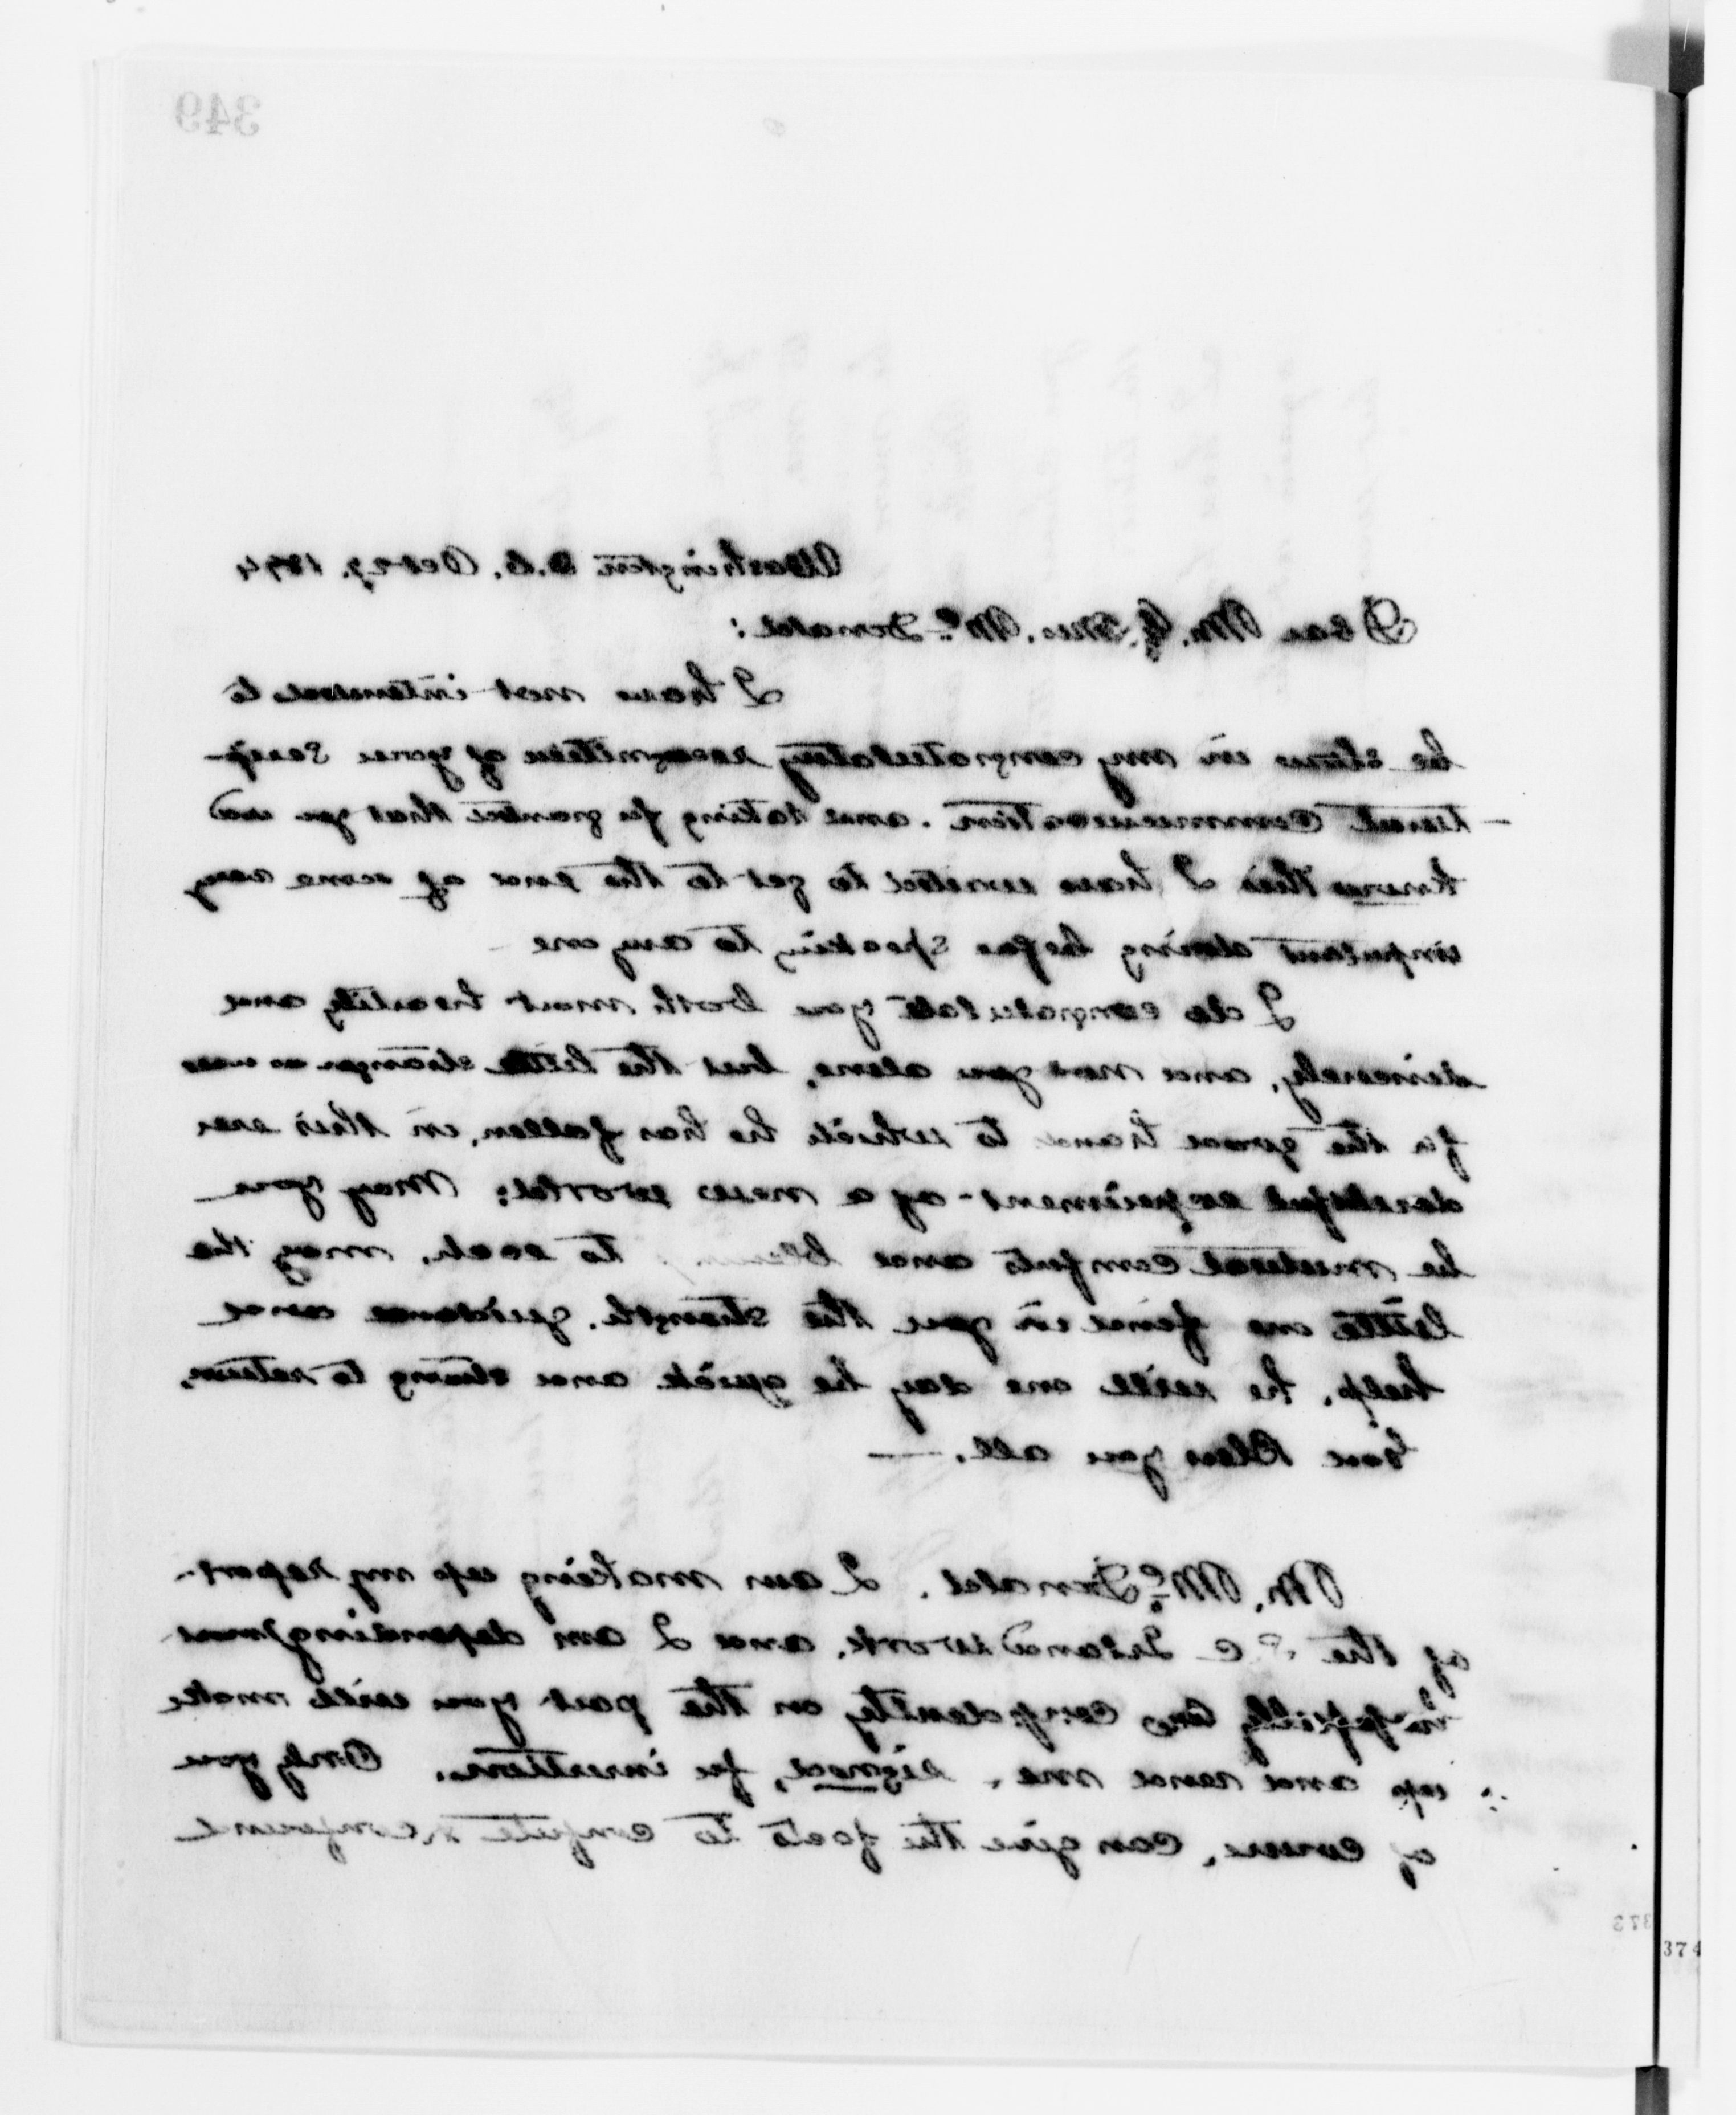 349
Washington D.C. Oct 27. 1894
Dear Mr. & Mrs. McDonald:
I have not intended to
be slow in my congratulatory recognition of your
communication. and taking for granted that you
knew this I have waited to get to the end of some very
important doing before speaking to any one
I do congratulate you both most heartily and
sincerely, and not you alone, but the little stranger as well
for the good hands to which he has fallen, in this
doubtful experiment of a new world: May you
be mutual comforts and to each, may the
little one find in you the strength, guidance and
help, he will one day be quick and strong to return,
God bless you all. —
Mr. McDonald. I am making up my report
of the S.C. Island work, and I am depending, most
hopefully and confidently on the part you will make
up and send me, signed, for insertion. Only you
of course, can give the facts to confute & confound
373
374